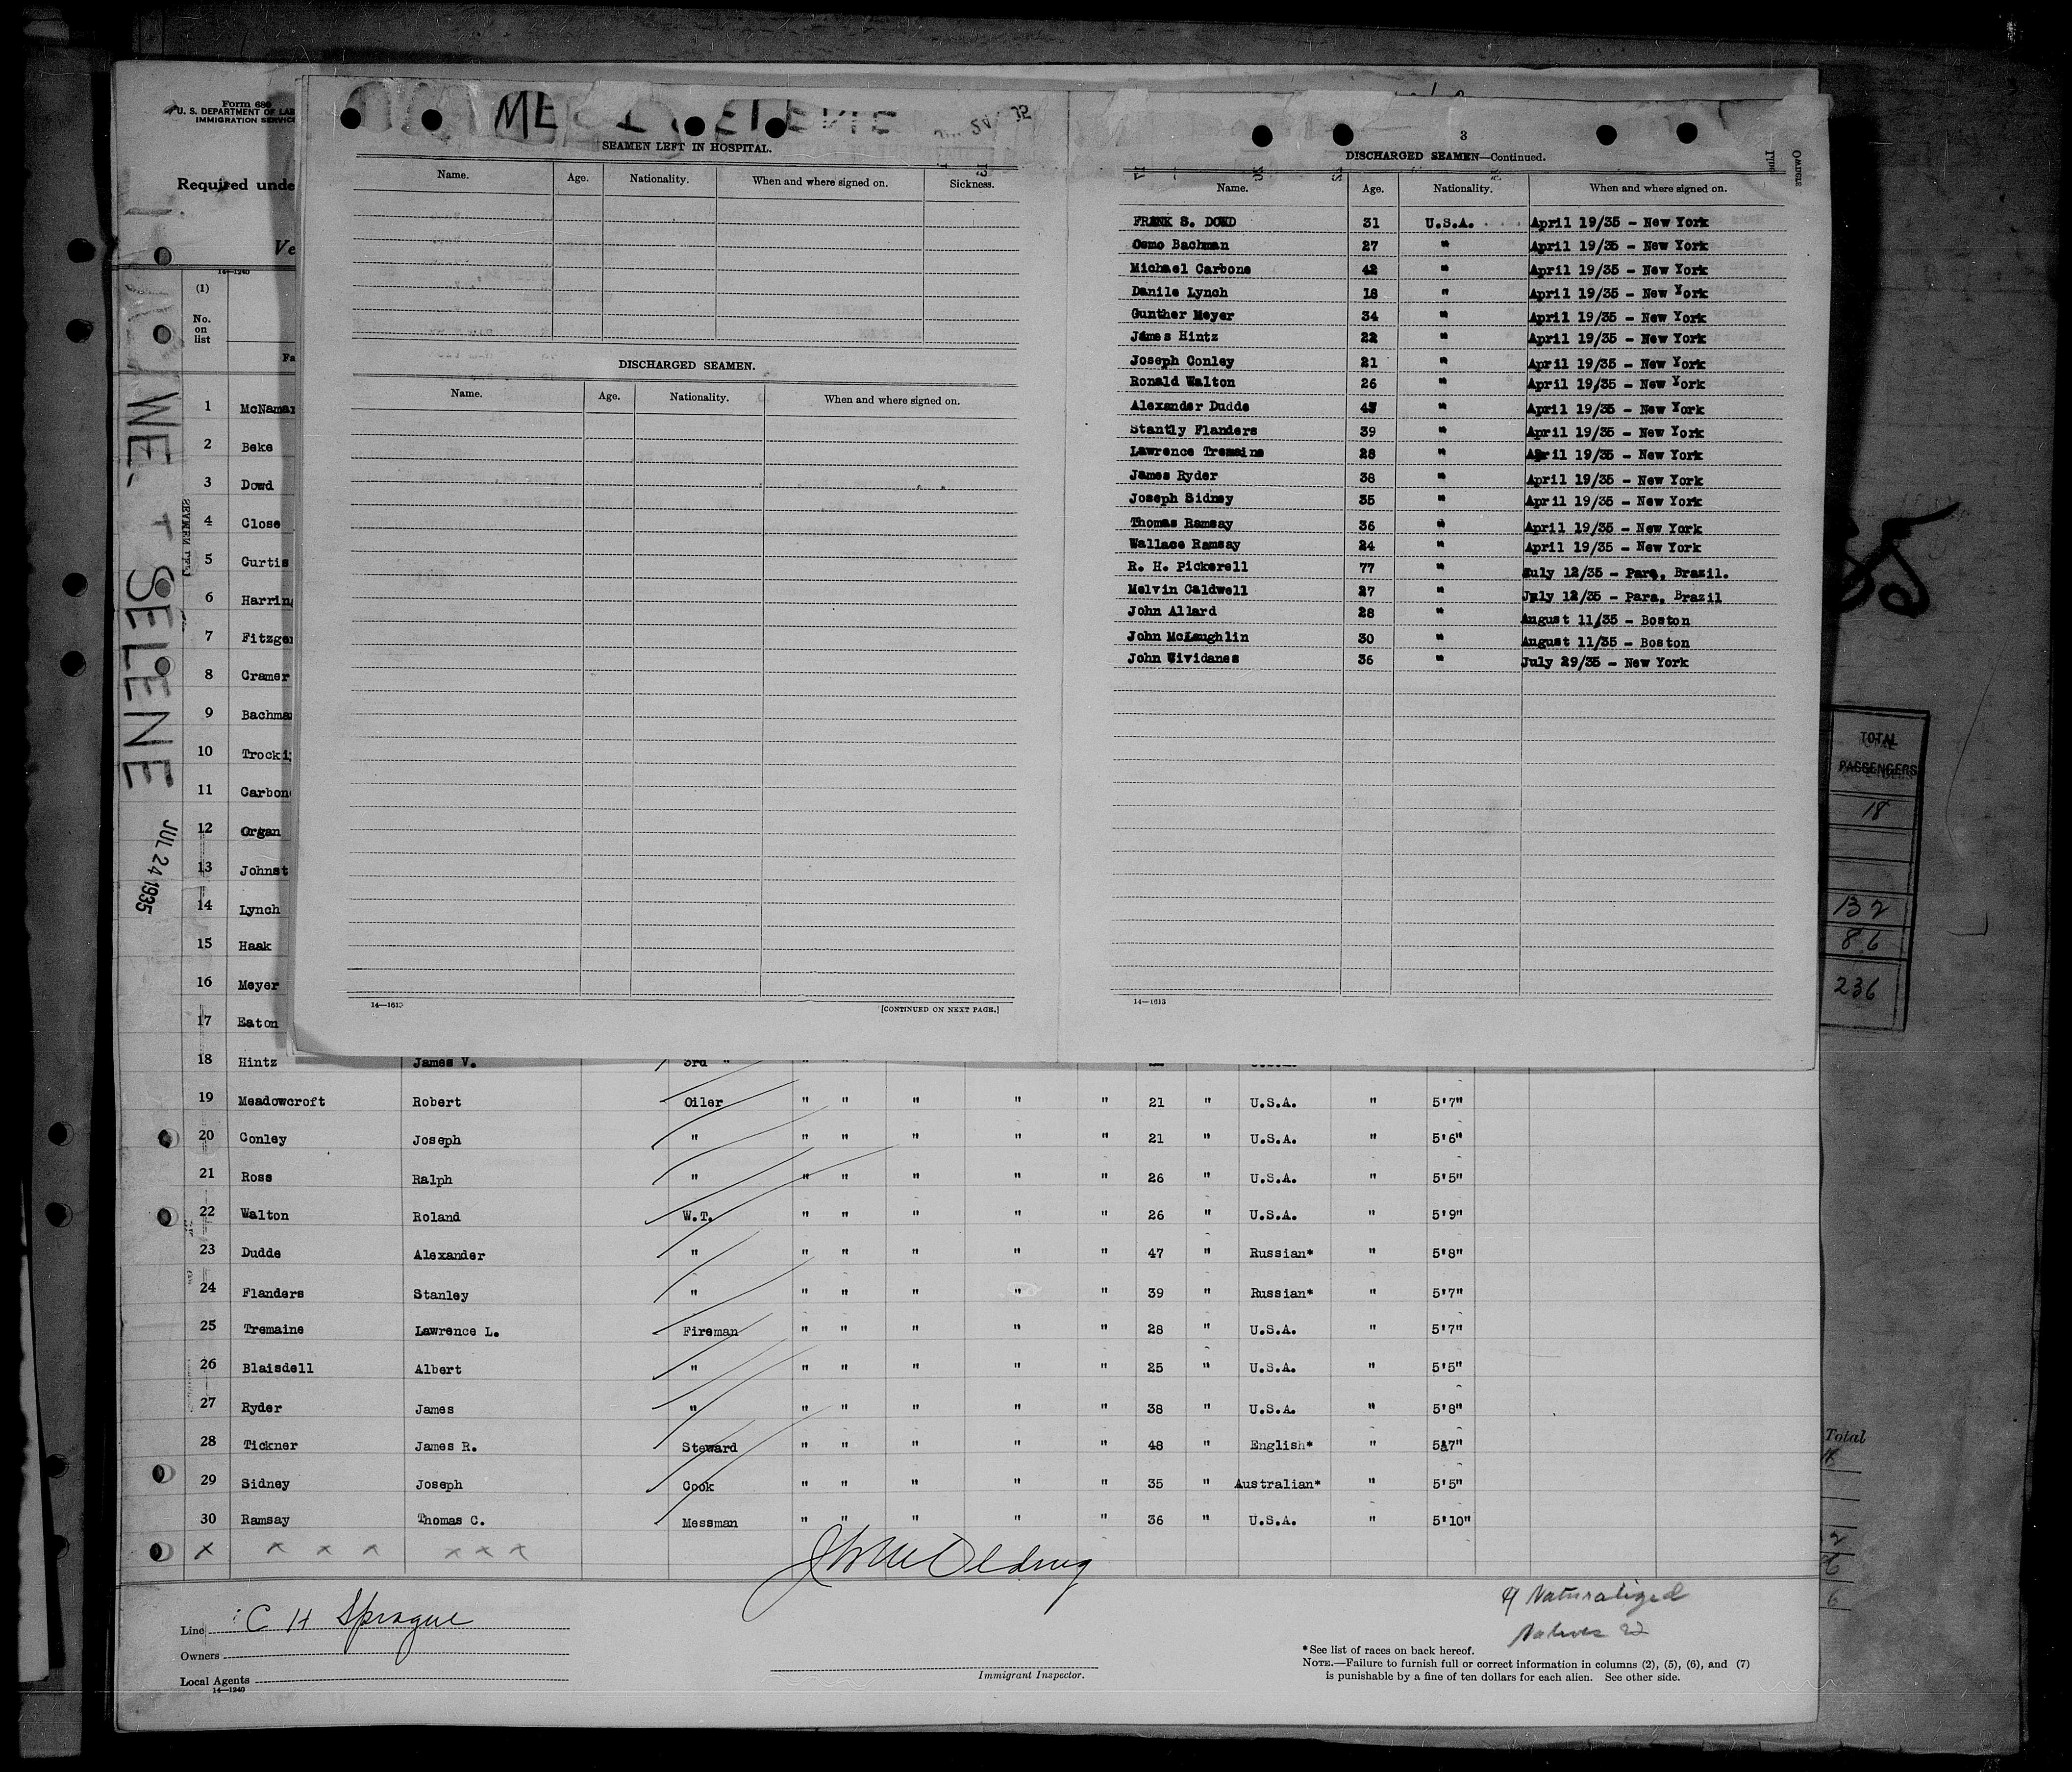 Form 680
U. S. DEPARTMENT OF LAB
IMMIGRATION SERVICE
Required unde
Ve
14—1240
(1)
No.
on
list
Fa
1 McNamar
2 Beke
3 Dowd
4 Close
5 Curtis
6 Harring
7 Fitzger
8 Cramer
9 Bachman
10 Trocki
11 Carbon
12 Organ
13 Johnst
14 Lynch
15 Haak
16 Meyer
17 Eaton
SELENE
JUL 24 1935
SEAMEN LEFT IN HOSPITAL.
Name. Age. Nationality. When and where signed on. Sickness.
DISCHARGED SEAMEN.
Name. Age. Nationality. When and where signed on.
14—1613
[CONTINUED ON NEXT PAGE.]
3
DISCHARGED SEAMEN—Continued.
Name. Age. Nationality. When and where signed on.
FRANK S. DOWD 31 U.S.A. April 19/35 - New York
Osmo Bachman 27 " April 19/35 - New York
Michael Carbone 42 " April 19/35 - New York
Danile Lynch 18 " April 19/35 - New York
Gunther Meyer 34 " April 19/35 - New York
James Hintz 22 " April 19/35 - New York
Joseph Conley 21 " April 19/35 - New York
Ronald Walton 26 " April 19/35 - New York
Alexander Dudde 47 " April 19/35 - New York
Stantly Flanders 39 " April 19/35 - New York
Lawrence Tremaine 28 " April 19/35 - New York
James Ryder 38 " April 19/35 - New York
Joseph Sidney 35 " April 19/35 - New York
Thomas Ramsay 36 " April 19/35 - New York
Wallace Ramsay 24 " April 19/35 - New York
R. H. Pickerell 77 " July 12/35 - Para, Brazil.
Melvin Caldwell 27 " July 12/35 - Para, Brazil
John Allard 28 " August 11/35 - Boston
John McLaughlin 30 " August 11/35 - Boston
John Vividanes 36 " July 29/35 - New York
14—1613
TOTAL
PASSENGERS
18
132
86
236
18 Hintz James V. 3rd "
19 Meadowcroft Robert Oiler " " " " " 21 " U.S.A. " 5'7"
20 Conley Joseph " " " " " " 21 " U.S.A. " 5'6"
21 Ross Ralph " " " " " " 26 " U.S.A. " 5'5"
22 Walton Roland W.T. " " " " " 26 " U.S.A. " 5'9"
23 Dudde Alexander " " " " " " 47 " Russian* " 5'8"
24 Flanders Stanley " " " " " " 39 " Russian* " 5'7"
25 Tremaine Lawrence L. Fireman " " " " " 28 " U.S.A. " 5'7"
26 Blaisdell Albert " " " " " " 25 " U.S.A. " 5'5"
27 Ryder James " " " " " " 38 " U.S.A. " 5'8"
28 Tickner James R. Steward " " " " " 48 " English* " 5'7"
29 Sidney Joseph Cook " " " " " 35 " Australian* " 5'5"
30 Ramsay Thomas C. Messman " " " " " 36 " U.S.A. " 5'10"
x x x x x x x
Total
Line C H Sprague
Owners
Local Agents
14—1240
Immigrant Inspector.
9 Naturalized
Natives 22
*See list of races on back hereof.
NOTE.—Failure to furnish full or correct information in columns (2), (5), (6), and (7)
is punishable by a fine of ten dollars for each alien. See other side.